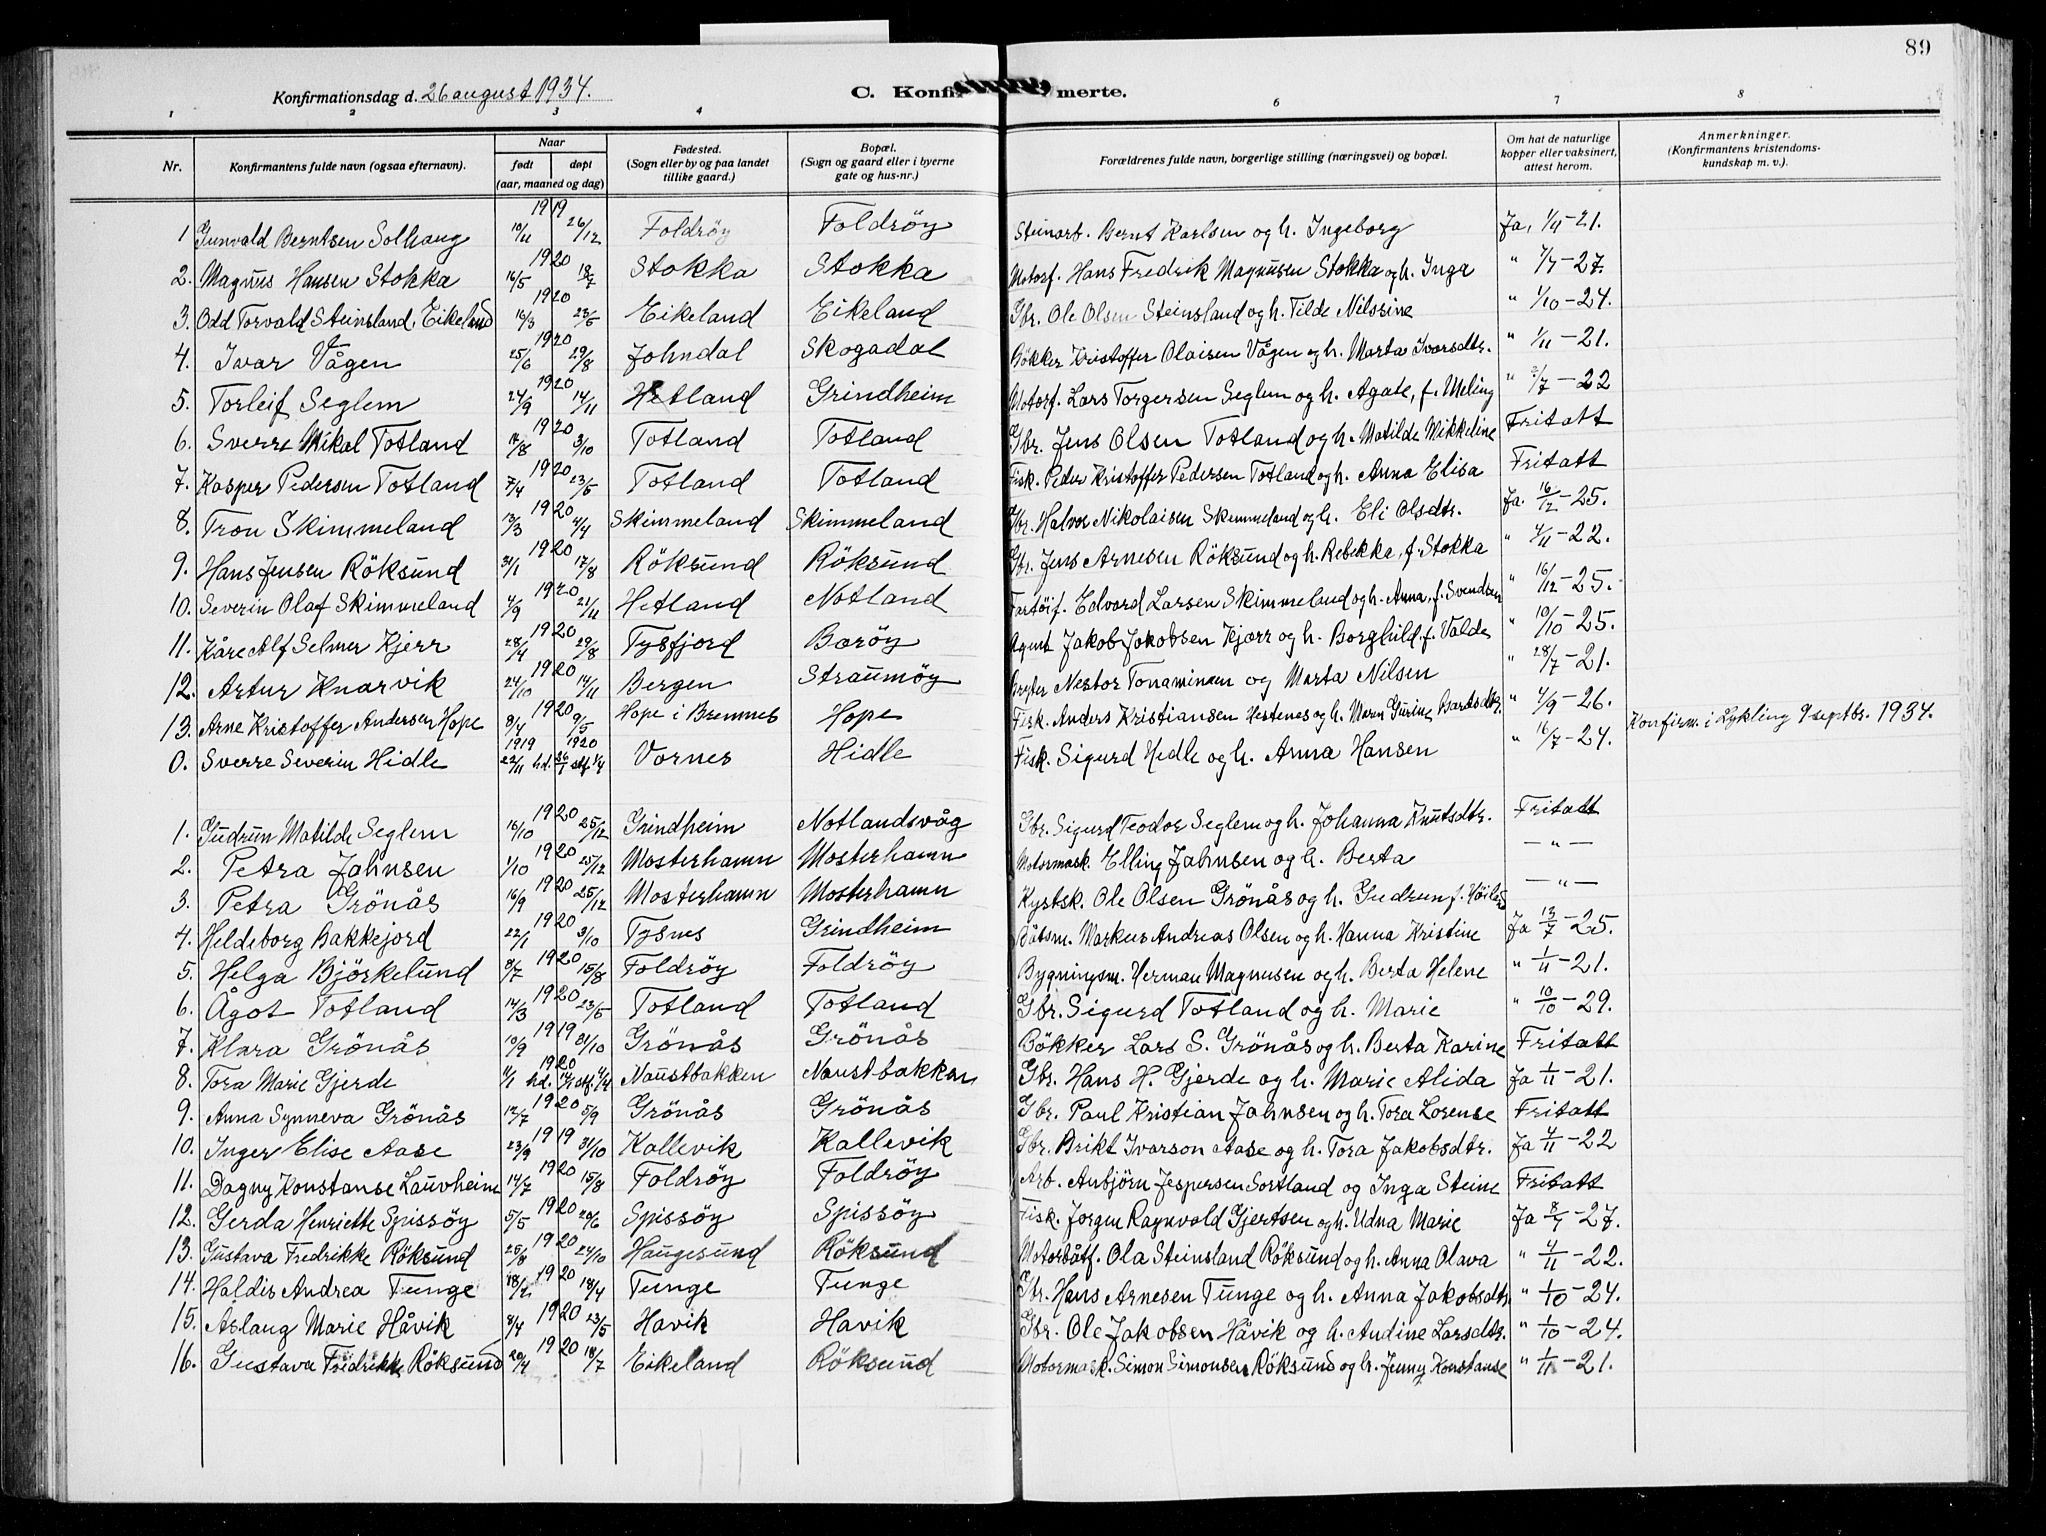 89
Konfirmationsdag d. 26 august 1934.
C. Konfir merte.
1 2 3 4 6 7 8
Nr. Konfirmantens fulde navn (ogsaa efternavn). Naar født døpt (aar, maaned og dag) Fødested. (Sogn eller by og paa landet tillike gaard.) Bopæl. (Sogn og gaard eller i byerne gate og hus-nr.) Forældrenes fulde navn, borgerlige stilling (næringsvei) og bopæl. Om hat de naturlige kopper eller vaksinert, attest herom. Anmerkninger. (Konfirmantens kristendoms-kundskap m. v.).
1 Gunvald Berntsen Solhaug 1919 10/11 26/12 Foldröy Foldröy Steinarb. Bernt Karlsen og h. Ingeborg Ja, 1/11-21.
2. Magnus Hansen Stokka 1920 16/5 18/7 Stokka Stokka Motorf. Hans Fredrik Magnusen Stokka og h. Inga " 7/7-27.
3. Odd Torvald Steinsland, Eikeland 1920 16/3 23/5 Eikeland Eikeland Gbr. Ole Olsen Steinsland og h. Tilde Nilssine " 1/10-24.
4. Ivar Vågen 1920 25/6 29/8 Johndal Skogadal Bökker Kristoffer Olaisen Vågen og h. Marta Ivarsdtr. " 1/11-21.
5. Torleif Seglem 1920 24/9 14/11 Hetland Grindheim Motorf. Lars Torgersen Seglem og h. Agate, f. Meling " /7-22
6. Sverre Mikal Totland 1920 17/8 3/10 Totland Totland Gbr. Jens Olsen Totland og h. Matilde Mikkeline Fritatt
7. Kasper Pedersen Totland 1920 7/4 23/5 Totland Totland Fisk. Peder Kristoffer Pedersen Totland og h. Anna Elisa Fritatt
8. Tron Skimmeland 1920 13/3 4/4 Skimmeland Skimmeland Gbr. Halvor Nikolaisen Skimmeland og h. Eli Olsdtr. Ja. 16/12-25.
9. Hans Jensen Röksund 1920 31/1 17/8 Röksund Röksund Gbr. Jens Arnesen Röksund og h. Rebekka, f. Stokka " 4/11-22.
10. Severin Olaf Skimmeland 1920 4/9 21/11 Hetland Notland Fartöif. Edvard Larsen Skimmeland og h. Anna, f. Svendsen " 16/12-25.
11. Kåre Alf Selmer Kjerr 1920 28/4 29/8 Tysfjord Baröy Agent Jakob Jakobsen Kjærr og h. Borghild f. Valde " 10/10-25.
12. Artur Knarvik 1920 24/10 14/11 Bergen Straumöy Nestor Tonaminen og Marta Nilsen " 28/7-21.
13. Arne Kristoffer Andersen Hope 1920 8/4 9/5 Hope i Bremnes Hope Fisk. Anders Kristiansen Hestenes og h. Maren Gurine Bardsdtr. " 4/9-26.
0. Sverre Severin Hidle 1919 22/11 hd. 1920 26/1 stf 1/4 Vornes Hidle Fisk. Sigurd Hidle og h. Anna Hansen " 16/7-24. Konfirm. i Lykling 9 septbr. 1934.
1. Gudrun Matilde Seglem 1920 16/10 25/12 Grindheim Notlandsvåg Gbr. Sigurd Teodor Seglem og h. Johanna Knutsdtr. Fritatt
2. Petra Jahnsen 1920 1/10 25/12 Mosterhamn Mosterhamn Motormask. Elling Jahnsen og h. Berta — " —
3. Petra Grönås 1920 16/9 25/12 Mosterhamn Mosterhamn Kystsk. Ole Olsen Grönås og h. Gudrun f. — " —
4. Heldeborg Bakkejord 1920 22/1 3/10 Tysnes Grindheim Båtsm. Markus Andreas Olsen og h. Hanna Kristine Ja 13/7-25.
5. Helga Björkelund 1920 8/7 15/8 Foldröy Foldröy Bygningsm. Herman Magnusen og h. Berta Helene " 1/11-21.
6. Ågot Totland 1920 14/3 23/5 Totland Totland Gbr. Sigurd Totland og h. Marie " 10/10-29.
7. Klara Grönås 1919 10/9 31/10 Grönås Grönås Bökker Lars S. Grönås og h. Berta Karine Fritatt
8. Tora Marie Gjerde 1920 11/1 hd. 14/1 stf. 4/4 Naustbakken Naustbakken Gbr. Hans H. Gjerde og h. Marie Alida Ja 1/11-21.
9. Anna Synneva Grönås 1920 12/7 5/9 Grönås Grönås Gbr. Paul Kristian Jahnsen og h. Tora Lorense Fritatt
10. Inger Elise Aase 1919 23/9 31/10 Kallevik Kallevik Gbr. Brikt Ivarson Aase og h. Tora Jakobsdtr. Ja 4/11-22
11. Dagny Konstanse Lauvheim 1920 14/7 15/8 Foldröy Foldröy Arb. Anbjörn Jespersen Sortland og Inga Steine Fritatt
12. Gerda Henriette Spissöy 1920 5/5 20/6 Spissöy Spissöy Fisk. Jörgen Ragnvald Gjertsen og h. Udna Marie Ja 8/7-27.
13. Gustava Fredrikke Röksund 1920 25/8 24/10 Haugesund Röksund Motorbåtf. Ola Steinsland Röksund og h. Anna Olava " 4/11-22.
14. Haldis Andrea Tunge 1920 18/2 18/4 Tunge Tunge Gbr. Hans Arnesen Tunge og h. Anna Jakobsdtr. " 1/10-24.
15. Aslaug Marie Håvik 1920 8/4 23/5 Havik Havik Gbr. Ole Jakobsen Håvik og h. Andine Larsdtr. " 1/10-24.
16. Gustava Fridrikke Röksund 1920 20/4 18/7 Eikeland Röksund Motormask. Simon Simonsen Röksund og h. Jenny Konstanse " 1/11-21.